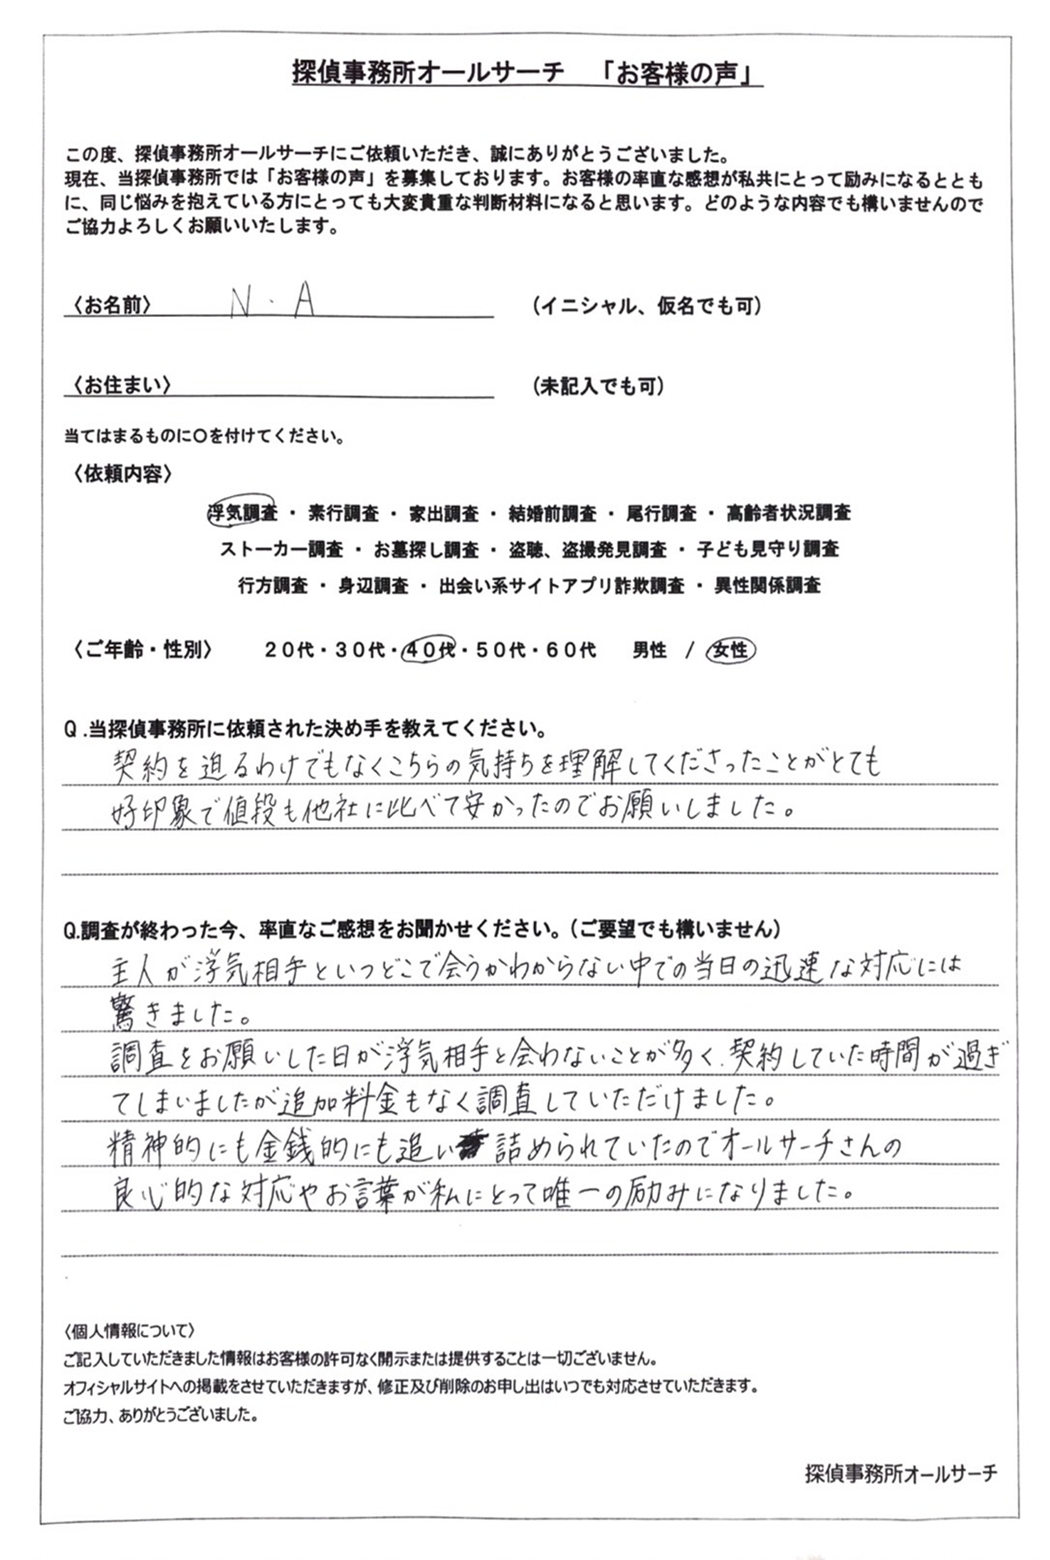 探偵事務所オールサーチ 「お客様の声」
この度、探偵事務所オールサーチにご依頼いただき、誠にありがとうございました。
現在、当探偵事務所では「お客様の声」を募集しております。お客様の率直な感想が私共にとって励みになるととも
に、同じ悩みを抱えている方にとっても大変貴重な判断材料になると思います。どのような内容でも構いませんので
ご協力よろしくお願いいたします。
〈お名前〉 N．A (イニシャル、仮名でも可)
〈お住まい〉 (未記入でも可)
当てはまるものに〇を付けてください。
〈依頼内容〉
浮気調査 ・ 素行調査 ・ 家出調査 ・ 結婚前調査 ・ 尾行調査 ・ 高齢者状況調査
ストーカー調査 ・ お墓探し調査 ・ 盗聴、盗撮発見調査 ・ 子ども見守り調査
行方調査 ・ 身辺調査 ・ 出会い系サイトアプリ詐欺調査 ・ 異性関係調査
〈ご年齢・性別〉 20代・30代・40代・50代・60代 男性 / 女性
Q.当探偵事務所に依頼された決め手を教えてください。
契約を迫るわけでもなくこちらの気持ちを理解してくださったことがとても
好印象で値段も他社に比べて安かったのでお願いしました。
Q.調査が終わった今、率直なご感想をお聞かせください。(ご要望でも構いません)
主人が浮気相手といつどこで会うかわからない中での当日の迅速な対応には
驚きました。
調査をお願いした日が浮気相手と会わないことが多く、契約していた時間が過ぎ
てしまいましたが追加料金もなく調査していただけました。
精神的にも金銭的にも追い詰められていたのでオールサーチさんの
良心的な対応やお言葉が私にとって唯一の励みになりました。
〈個人情報について〉
ご記入していただきました情報はお客様の許可なく開示または提供することは一切ございません。
オフィシャルサイトへの掲載をさせていただきますが、修正及び削除のお申し出はいつでも対応させていただきます。
ご協力、ありがとうございました。
探偵事務所オールサーチ